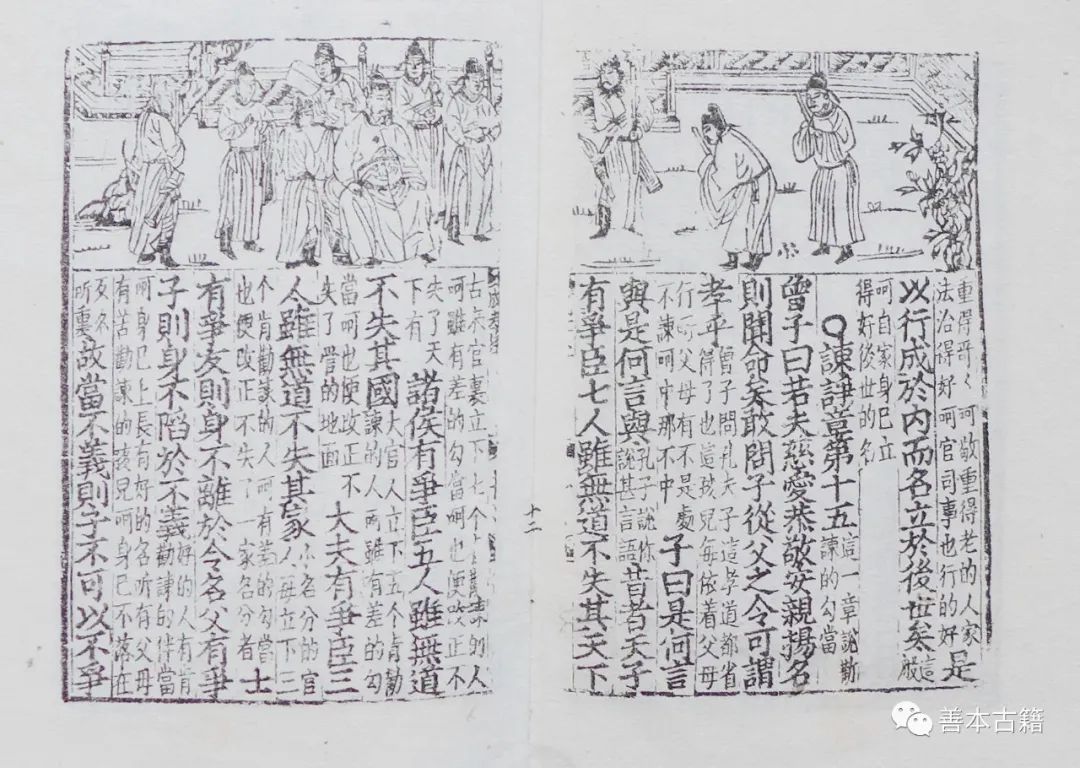 重得哥〻呵敬重得老的人家
法治得好呵官司事也行的好
是
以行成於內而名立於後世矣
這
般
呵自家身已立
得好後世的名
○諫諍章第十五
這一章說勸
諫的勾當
曾子曰若夫慈愛恭敬安親揚名
則聞命矣敢問子從父之令可謂
孝乎
曾子問孔夫子這孝道都省
得了也這孩兒每依着父母
行呵父母有不是處
不諫呵中那不中
子曰是何言
與是何言與
孔子說你
說甚言語
昔者天子
有爭臣七人雖無道不失其天下
十二
古來官裏立下七个諫的人
呵雖有差的勾當呵也便改正不
失了天
下有
諸侯有爭臣五人雖無道
不失其國
大官人立下五个肯勸
諫的人呵雖有差的勾
當呵也便改正不
失了管的地面
大夫有爭臣三
人雖無道不失其家
小名分的官
人每立下三
个肯勸諫的人呵有差的勾當
也便改正不失了一家名分者
士
有爭友則身不離於令名父有爭
子則身不陷於不義
好的人有肯
勸諫的伴當
呵身已上長有好的名听有父母
有苦勸諫的孩兒呵身已不落在
歹名
听裏
故當不義則子不可以不爭
善本古籍